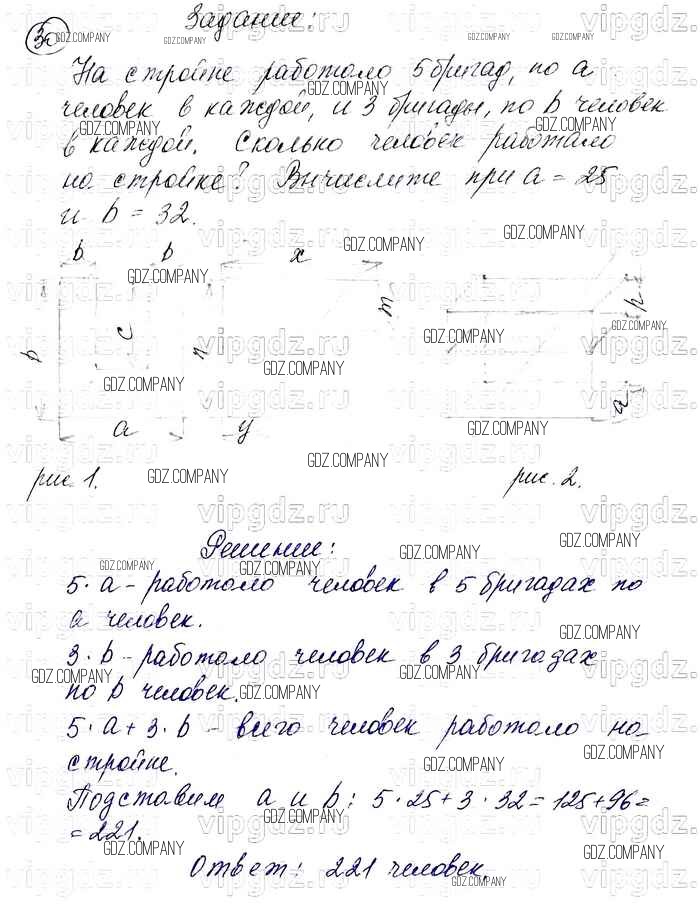 Задание:
30
На стройке работало 5 бригад, по a
человек в каждой, и 3 бригады, по b человек
в каждой. Сколько человек работало
на стройке? Вычислите при a = 25
и b = 32.
b b x
b c n m p
a y a
рис. 1. рис. 2.
Решение:
5 · a – работало человек в 5 бригадах по
a человек.
3 · b – работало человек в 3 бригадах
по b человек.
5 · a + 3 · b – всего человек работало на
стройке.
Подставим a и b: 5 · 25 + 3 · 32 = 125 + 96 =
= 221.
Ответ: 221 человек.
GDZ.COMPANY
vipgdz.ru